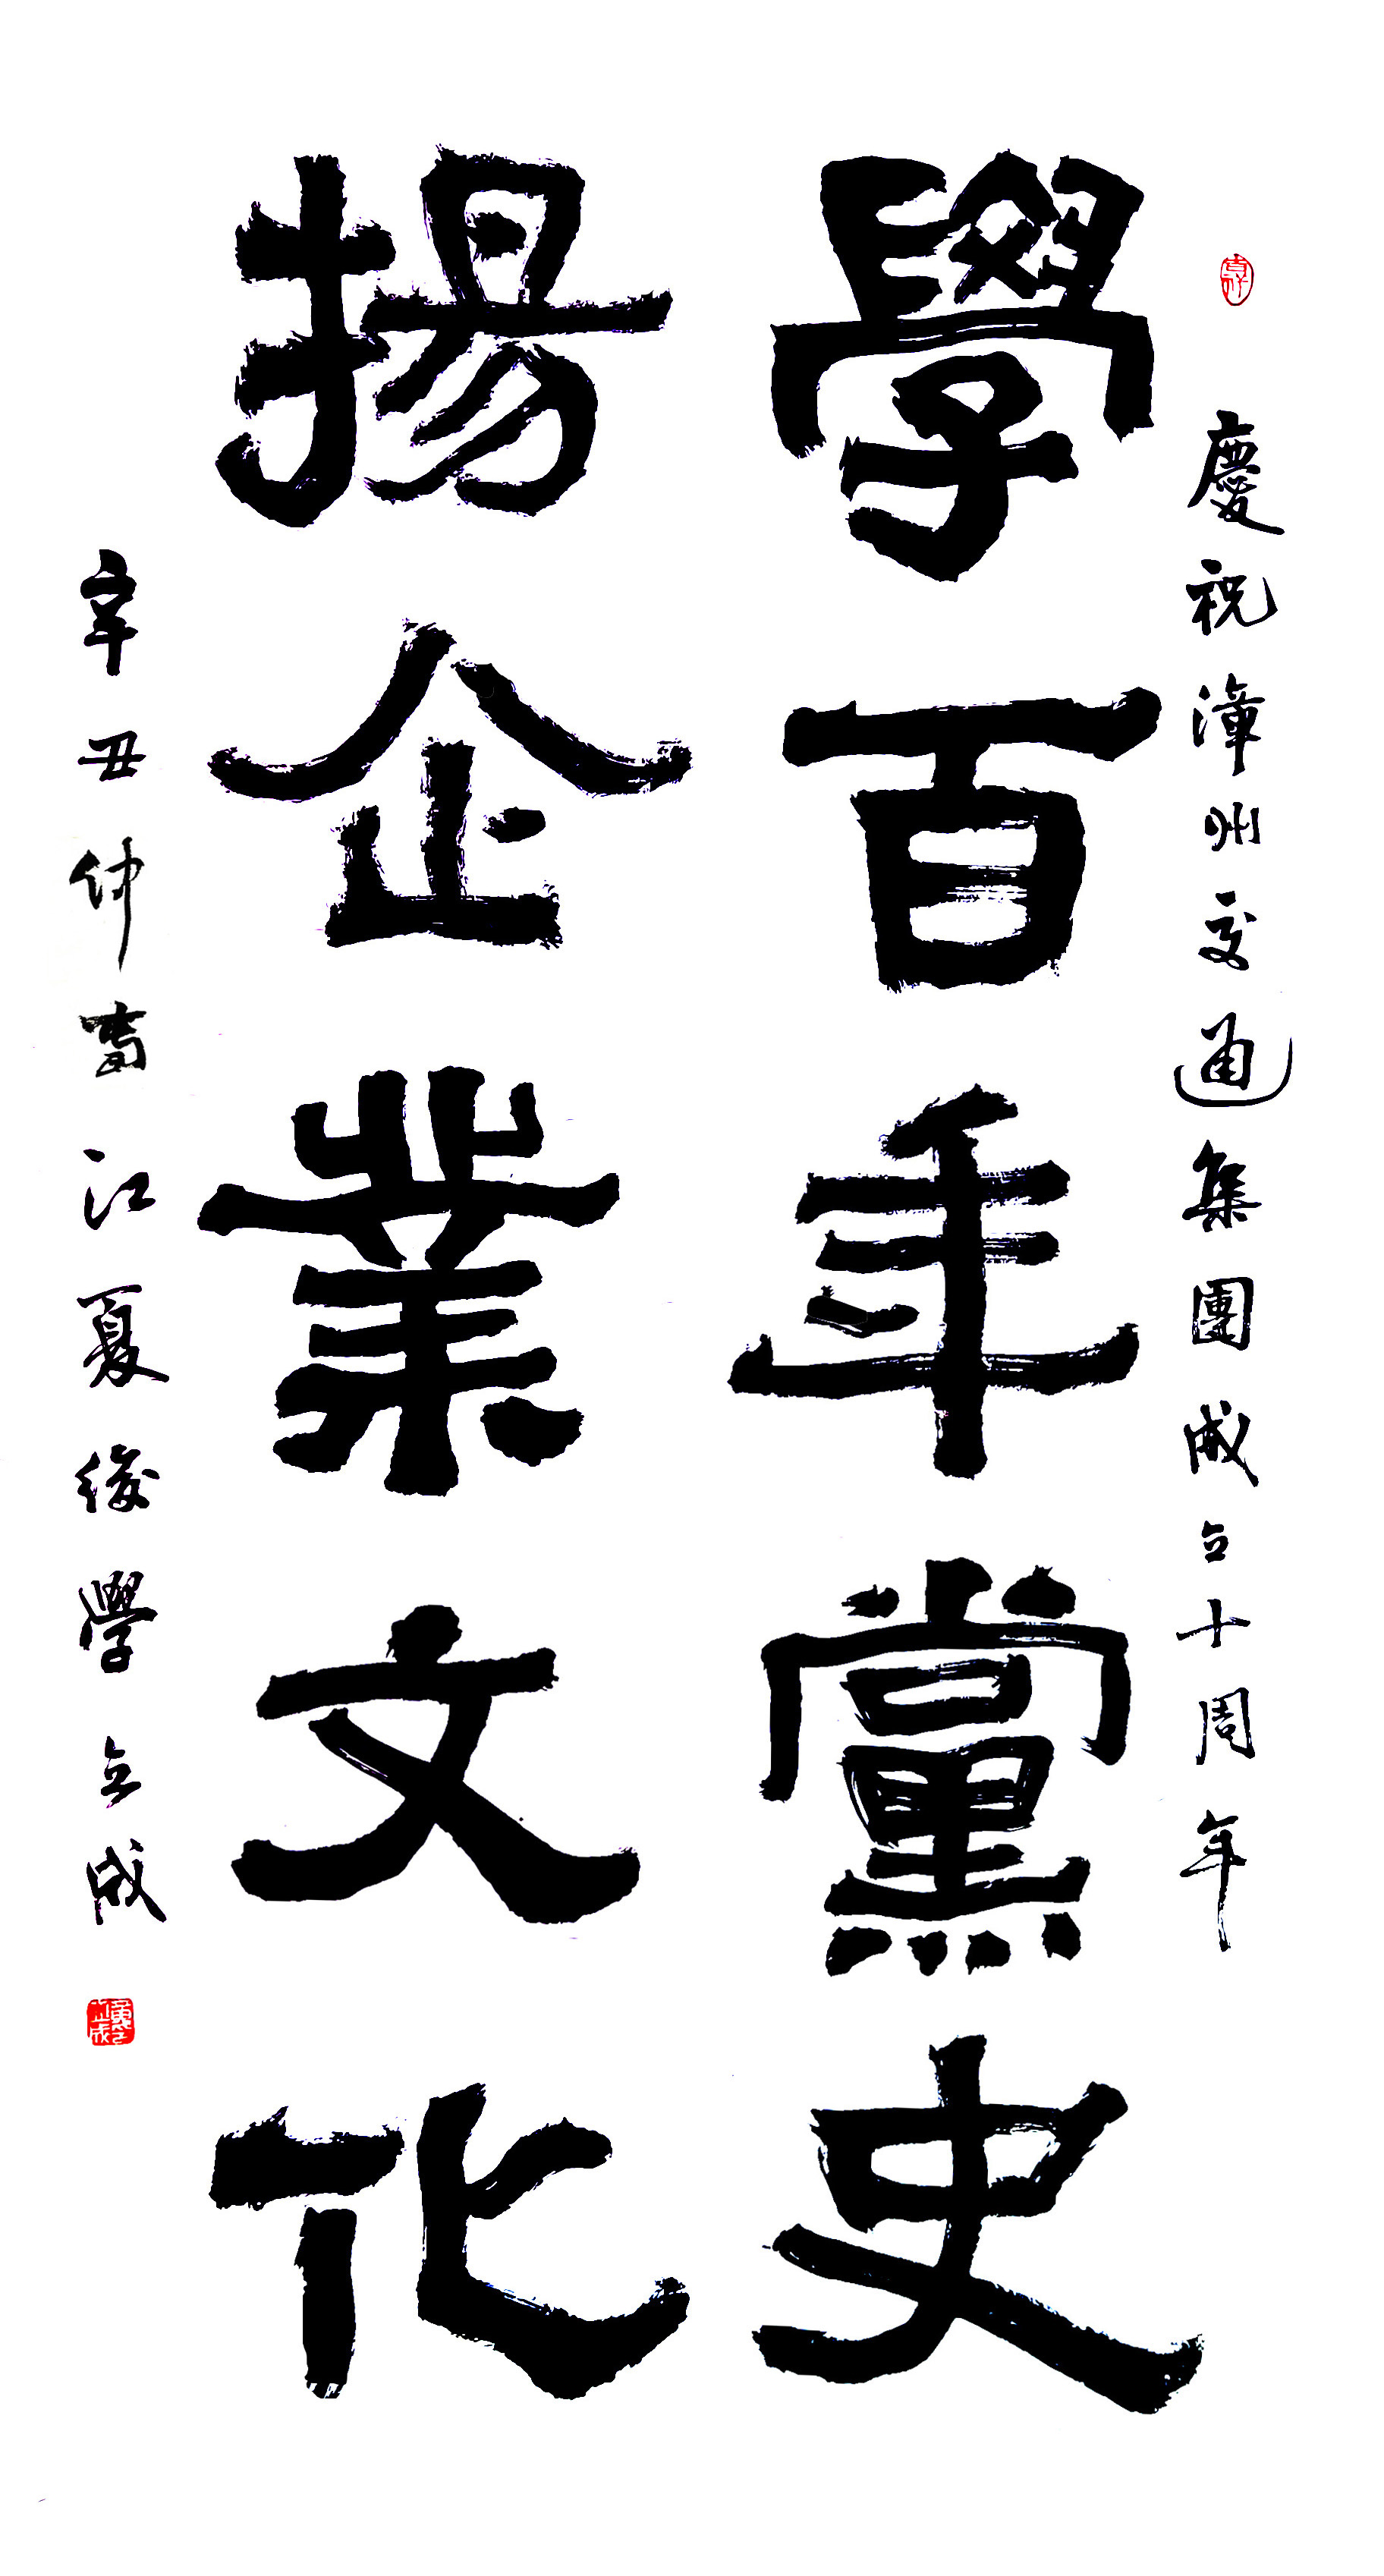 慶祝漳州交通集團成立十周年
學百年黨史
揚企業文化
辛丑仲春江夏後學立成